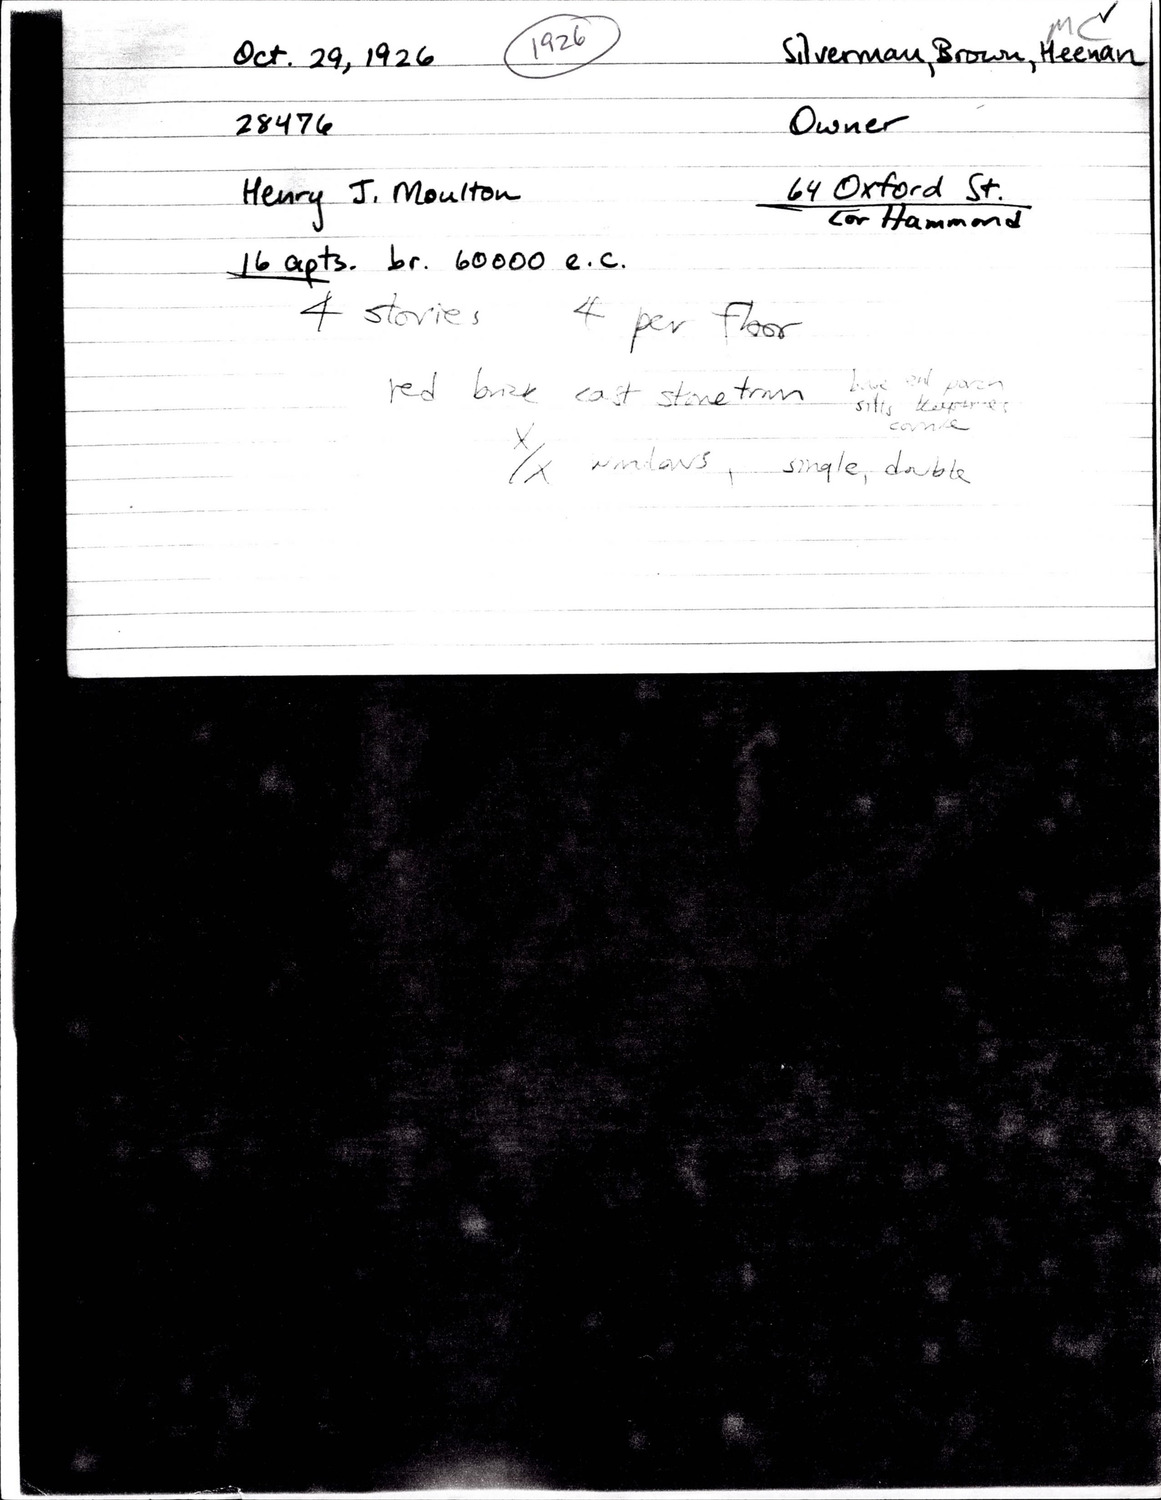 MC ✓
Oct. 29, 1926 1926 Silverman, Brown, Heenan
28476 Owner
Henry J. Moulton 64 Oxford St.
cor Hammond
16 apts. br. 60000 e.c.
4 stories 4 per floor
red brick cast stone trim
sills keystones
cornice
X/X windows, single, double